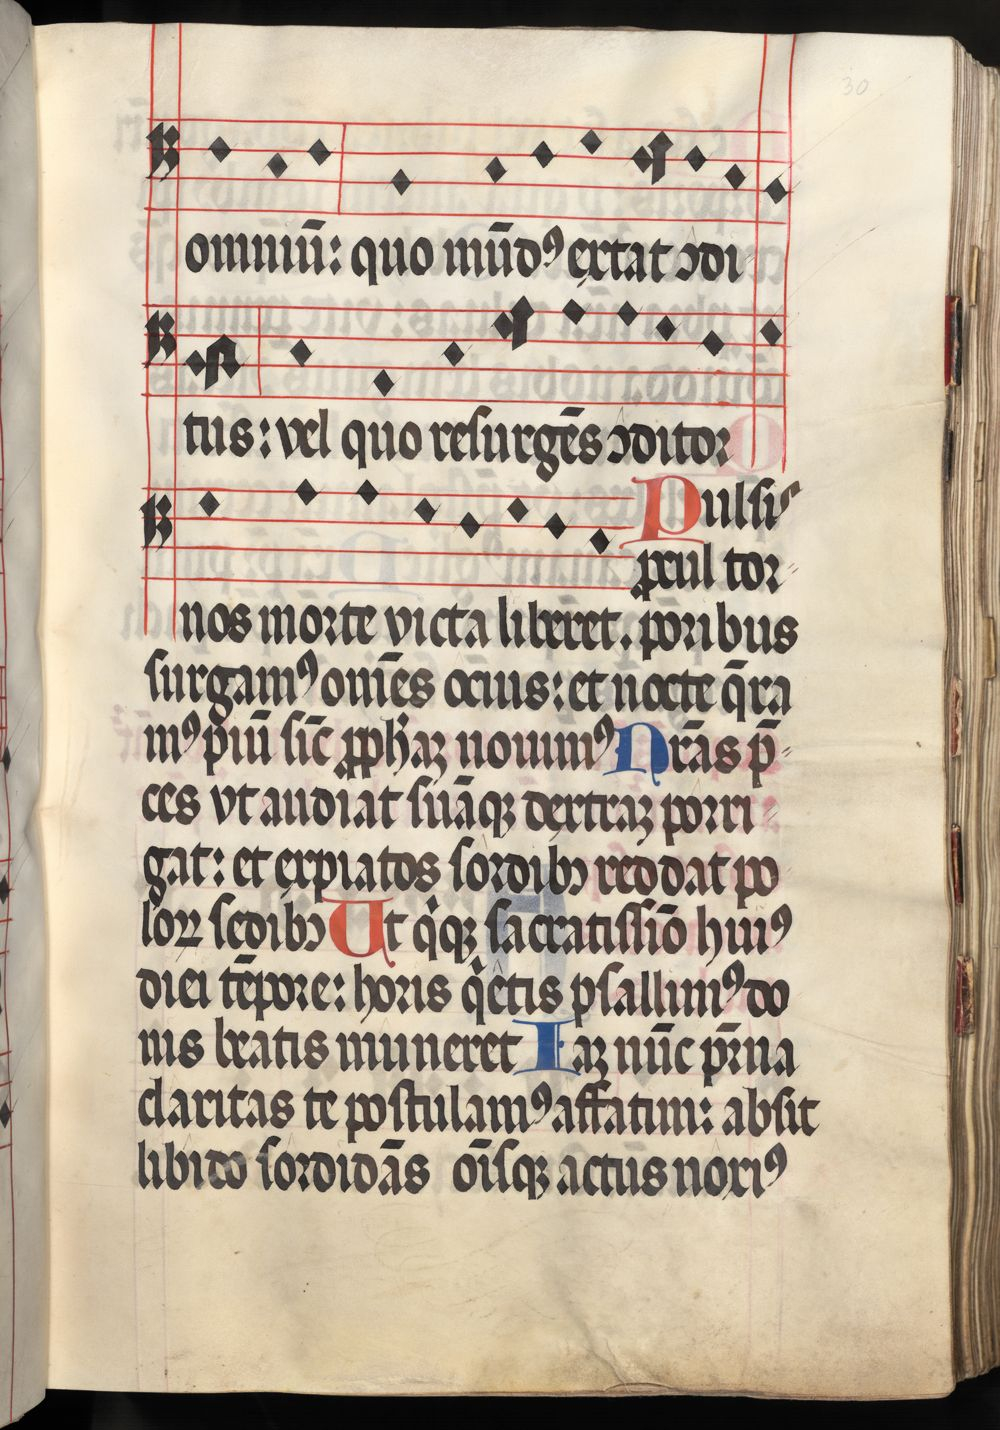 30
omniū: quo mūdꝰ extat ↄdi
tus: vel quo reſurgēs ↄditor
Pulſis
procul tor
nos morte victa liberet. poribus
ſurgamꝰ om̄es ocius: et nocte q̄ra
mꝰ piū ſic̄ ꝓph̄aꝫ nouimꝰ Nr̄as p̄
ces vt audiat ſuāqꝫ dextraꝫ porri
gat: et expiatos ſordibꝰ reddat po
loꝝ ſedibꝰ Ut qͥqꝫ ſacratiſſīo huiꝰ
diei tēpore: horis qͥetis pſallimꝰ do
nis beatis muneret Iaꝫ nūc pr̄na
claritas te poſtulamꝰ affatim: abſit
libido ſordidās oīſqꝫ actus noxiꝰ